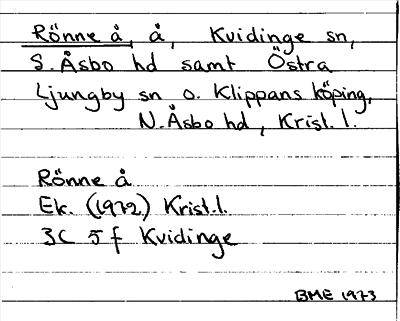 Rönne å, å, Kvidinge sn,
S. Åsbo hd samt Östra
Ljungby sn o. Klippans köping,
N. Åsbo hd, Krist. l.
Rönne å
Ek. (1972) Krist. l.
3C 5f Kvidinge
BME 1973